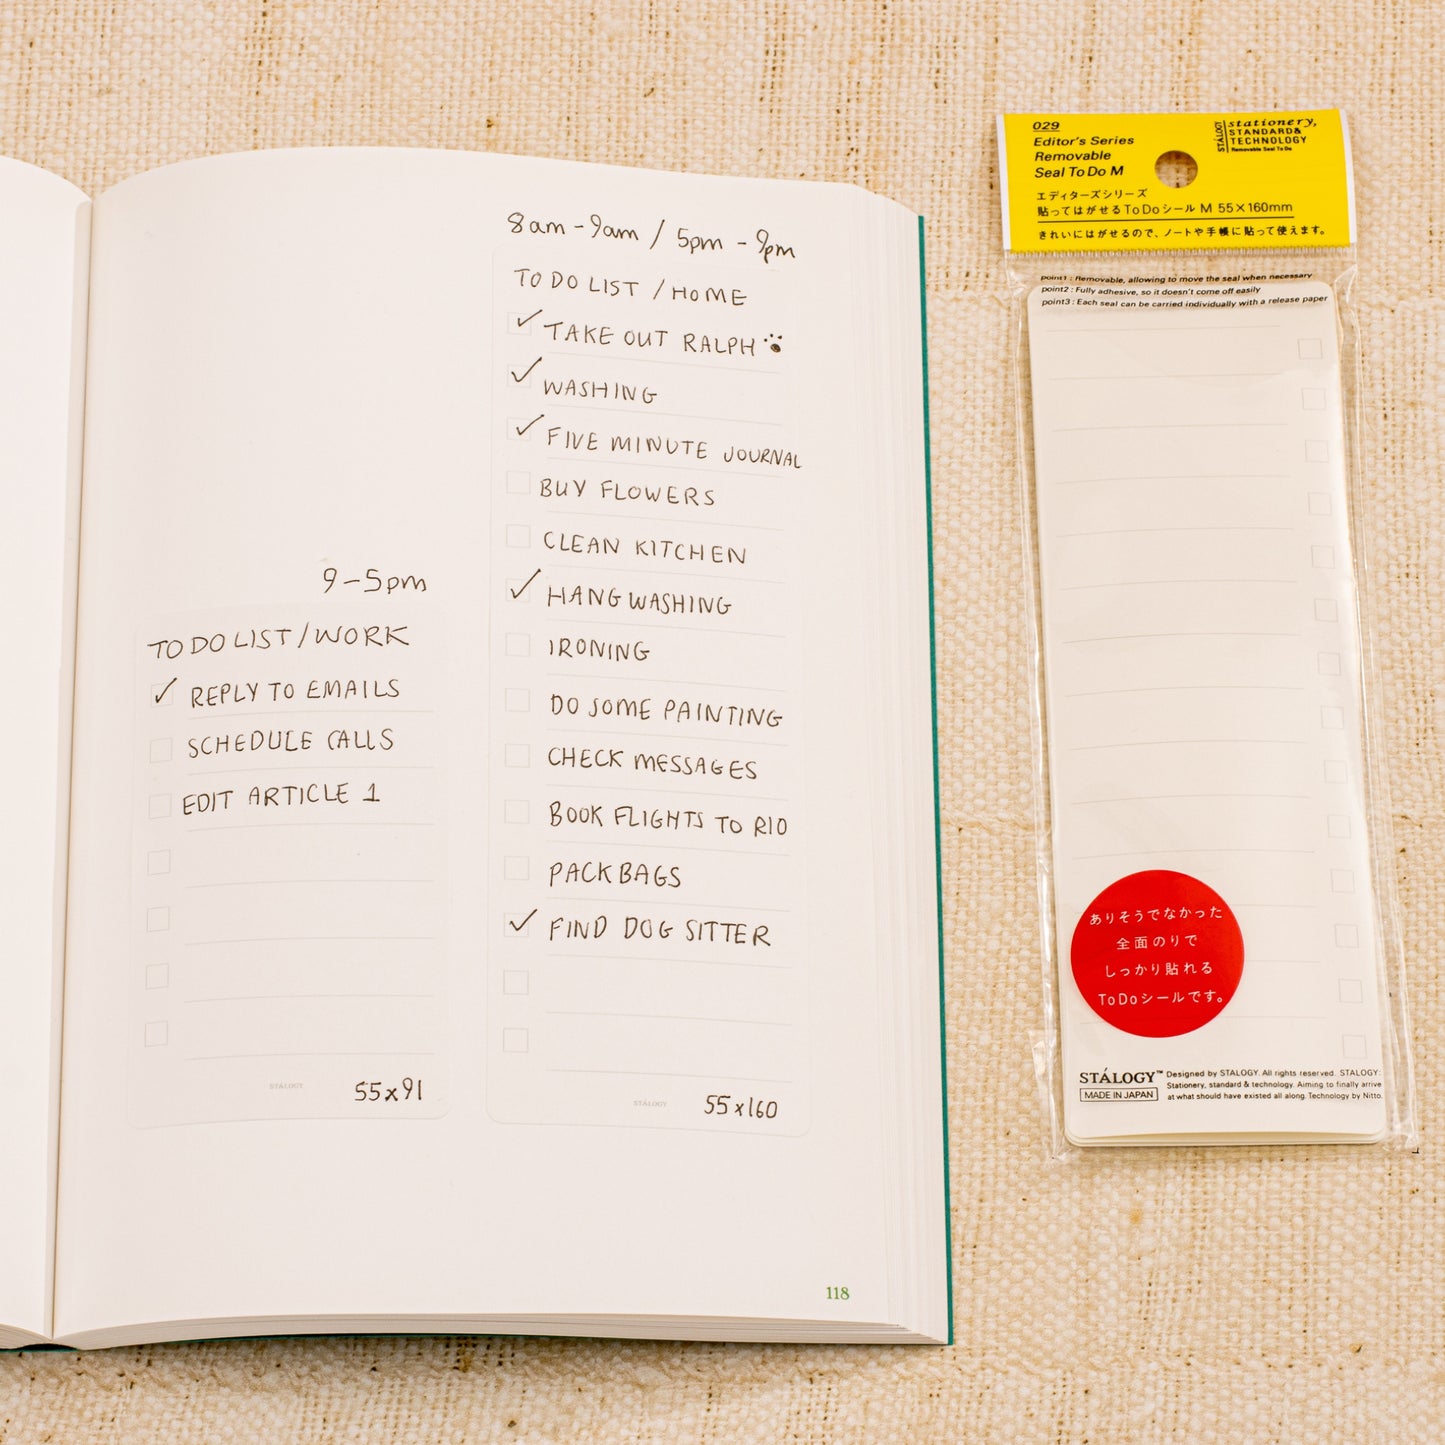 8am - 9am / 5pm - 9pm
TO DO LIST / HOME
TAKE OUT RALPH
WASHING
FIVE MINUTE JOURNAL
BUY FLOWERS
CLEAN KITCHEN
HANG WASHING
IRONING
DO SOME PAINTING
CHECK MESSAGES
BOOK FLIGHTS TO RIO
PACK BAGS
FIND DOG SITTER
STÁLOGY
55x160
9-5pm
TO DO LIST / WORK
REPLY TO EMAILS
SCHEDULE CALLS
EDIT ARTICLE 1
STÁLOGY
55x91
118
029
Editor's Series
Removable
Seal To Do M
STÁLOGY
stationery,
STANDARD&
TECHNOLOGY
Removable Seal To Do
エディターズシリーズ
貼ってはがせるToDoシール M 55×160mm
きれいにはがせるので、ノートや手帳に貼って使えます。
point1 : Removable, allowing to move the seal when necessary
point2 : Fully adhesive, so it doesn't come off easily
point3 : Each seal can be carried individually with a release paper
ありそうでなかった
全面のりで
しっかり貼れる
ToDoシールです。
STÁLOGY™
MADE IN JAPAN
Designed by STALOGY. All rights reserved. STALOGY:
Stationery, standard & technology. Aiming to finally arrive
at what should have existed all along. Technology by Nitto.